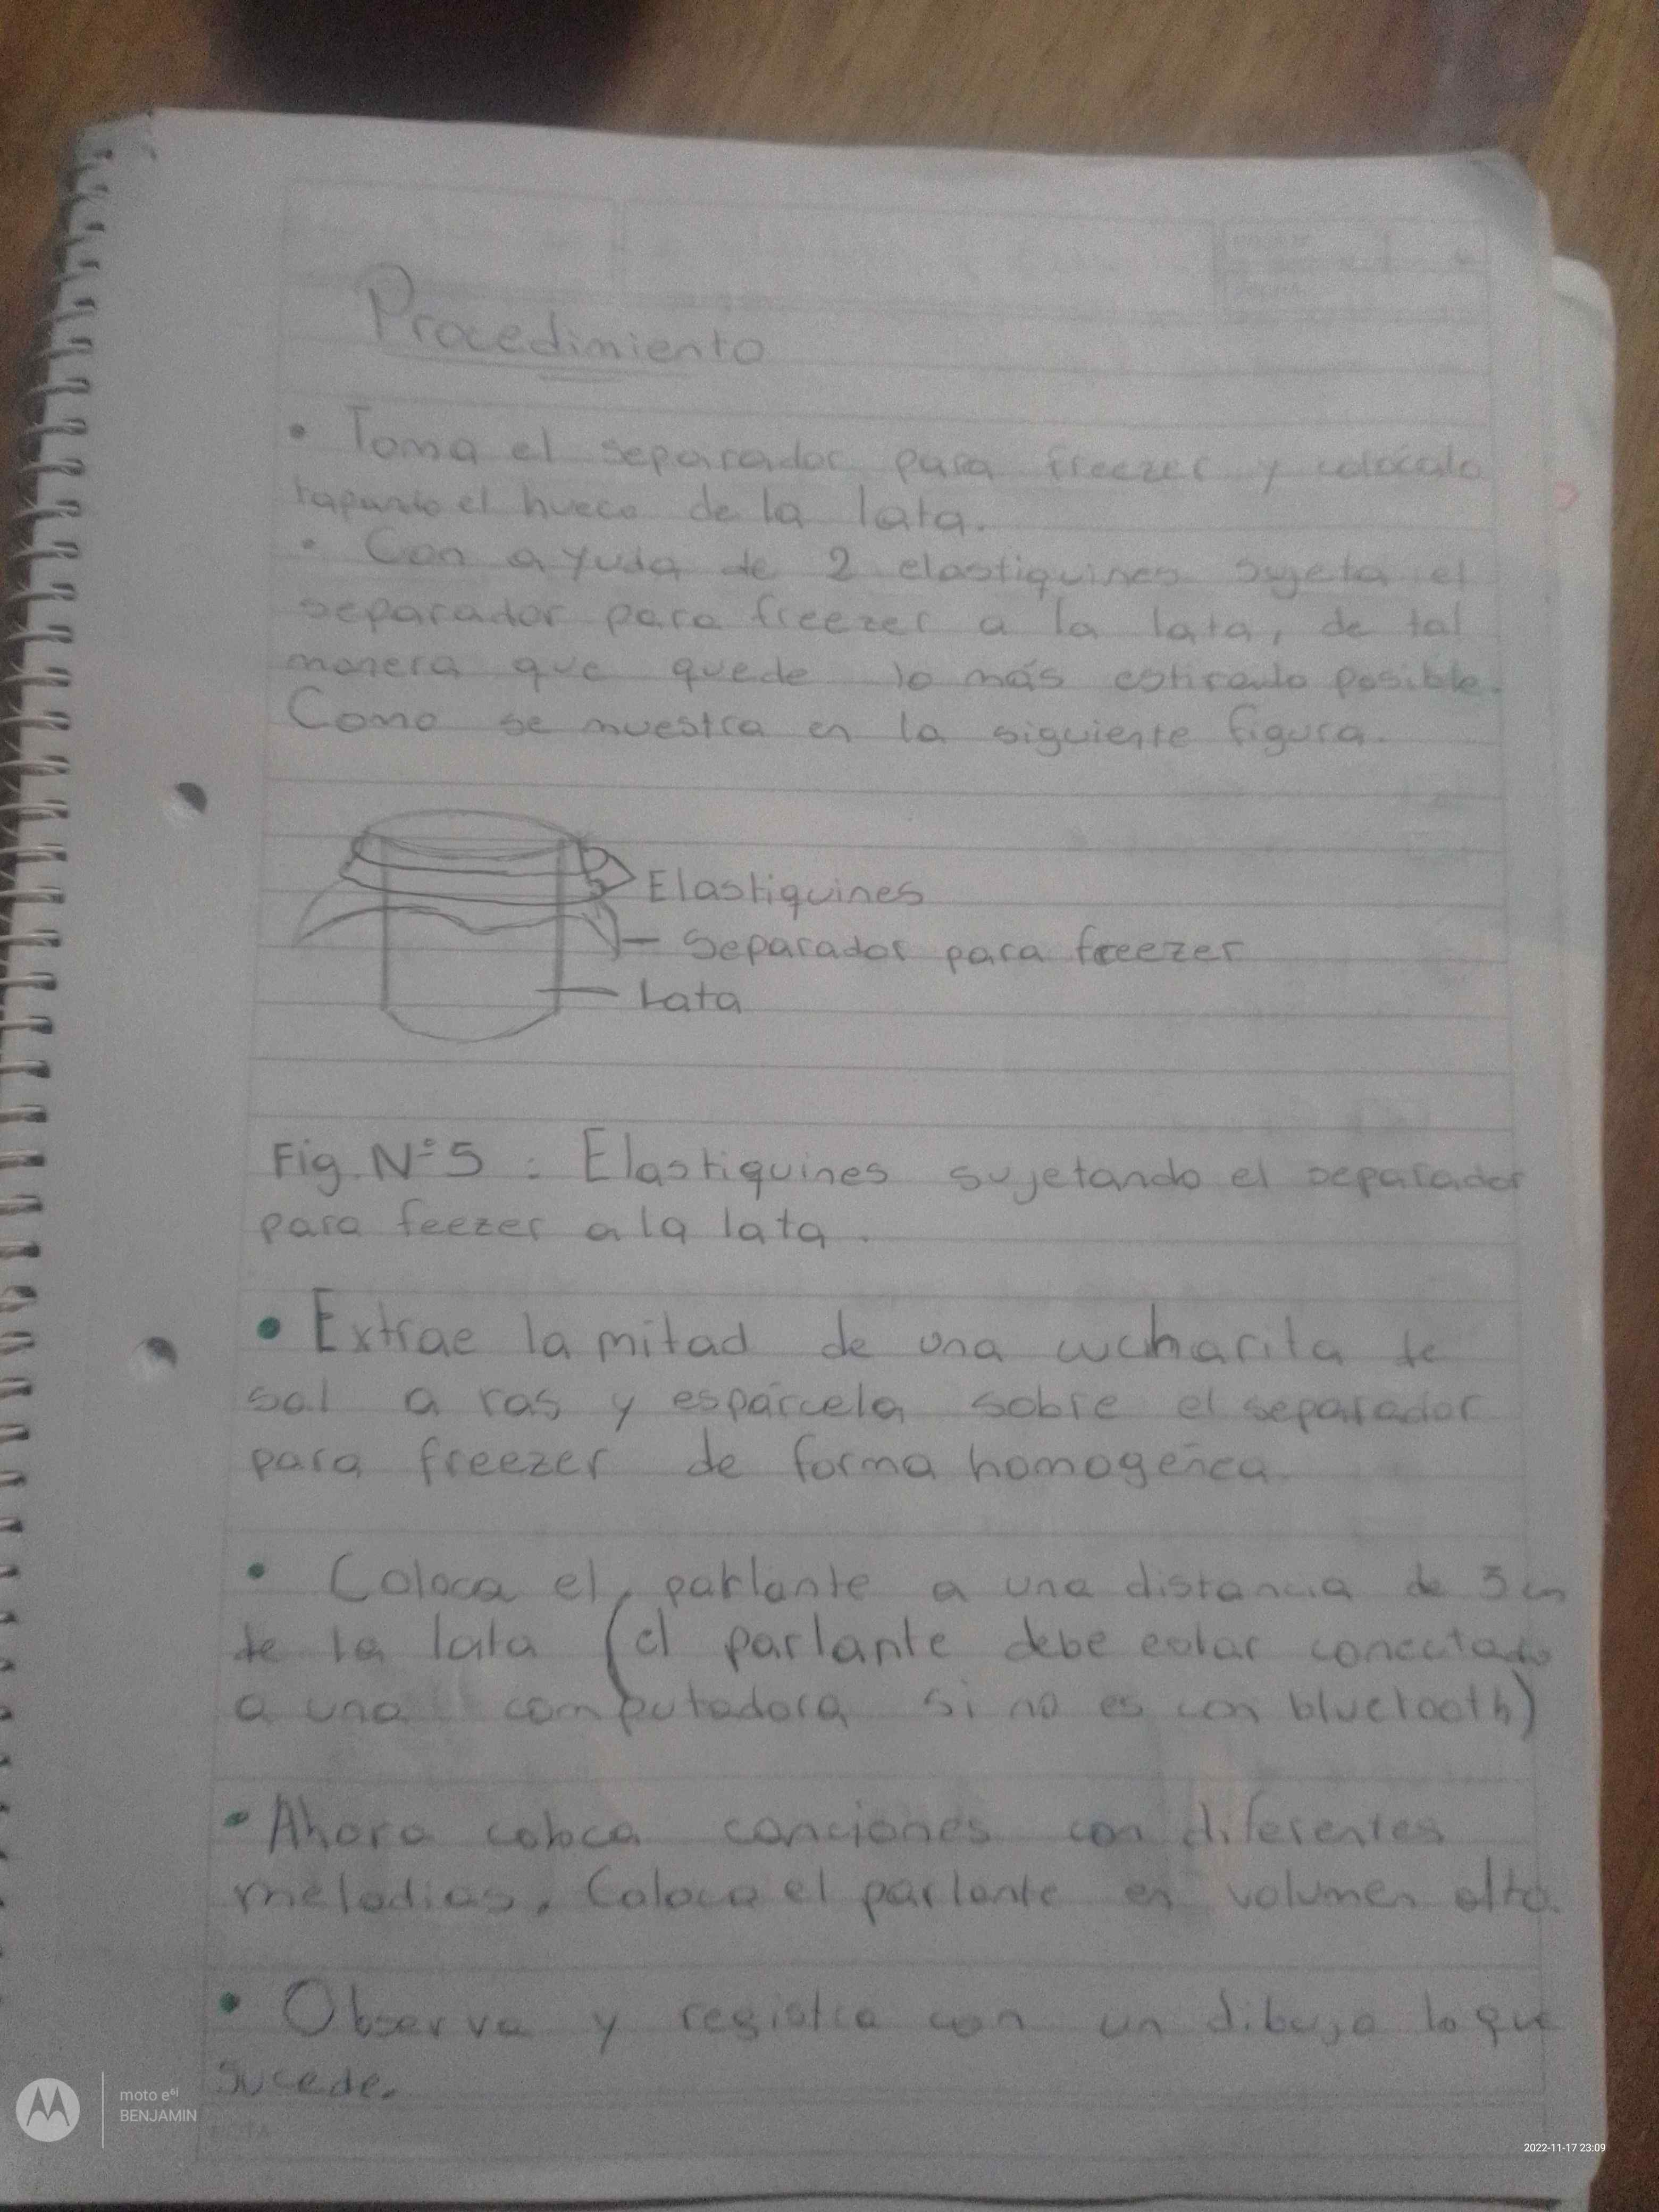 Procedimiento
• Toma el separador para freezer y colócalo
tapando el hueco de la lata.
• Con ayuda de 2 elastiquines sujeta el
separador para freezer a la lata, de tal
manera que quede lo más estirado posible.
Como se muestra en la siguiente figura.
Elastiquines
Separador para freezer
Lata
Fig. N° 5 : Elastiquines sujetando el separador
para feezer a la lata.
• Extrae la mitad de una cucharita de
sal a ras y espárcela sobre el separador
para freezer de forma homogénea.
• Coloca el parlante a una distancia de 3 cm
de la lata (el parlante debe estar conectado
a una computadora si no es con bluetooth)
• Ahora coloca canciones con diferentes
melodias. Coloca el parlante en volumen alto.
• Observa y registra con un dibujo lo que
sucede.
moto e⁶ⁱ
BENJAMIN
2022-11-17 23:09